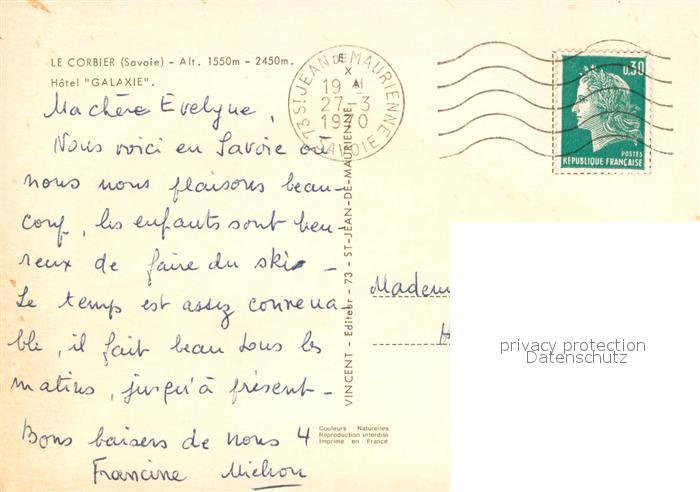 LE CORBIER (Savoie) - Alt. 1550m - 2450m.
Hôtel "GALAXIE".
Ma chère Evelyne,
Nous voici en Savoie où
nous nous plaisons beau-
coup, les enfants sont heu-
reux de faire du ski -
Le temps est assez convena-
ble, il fait beau tous les
matins, jusqu'à présent -
Bons baisers de nous 4
Francine Michou
73 ST JEAN DE MAURIENNE
19 H
27-3
1970
SAVOIE
0,30
POSTES
RÉPUBLIQUE FRANÇAISE
VINCENT - Editeur - 73 - ST-JEAN-DE-MAURIENNE
Madem
privacy protection
Datenschutz
Couleurs Naturelles
Reproduction interdite
Imprimé en France